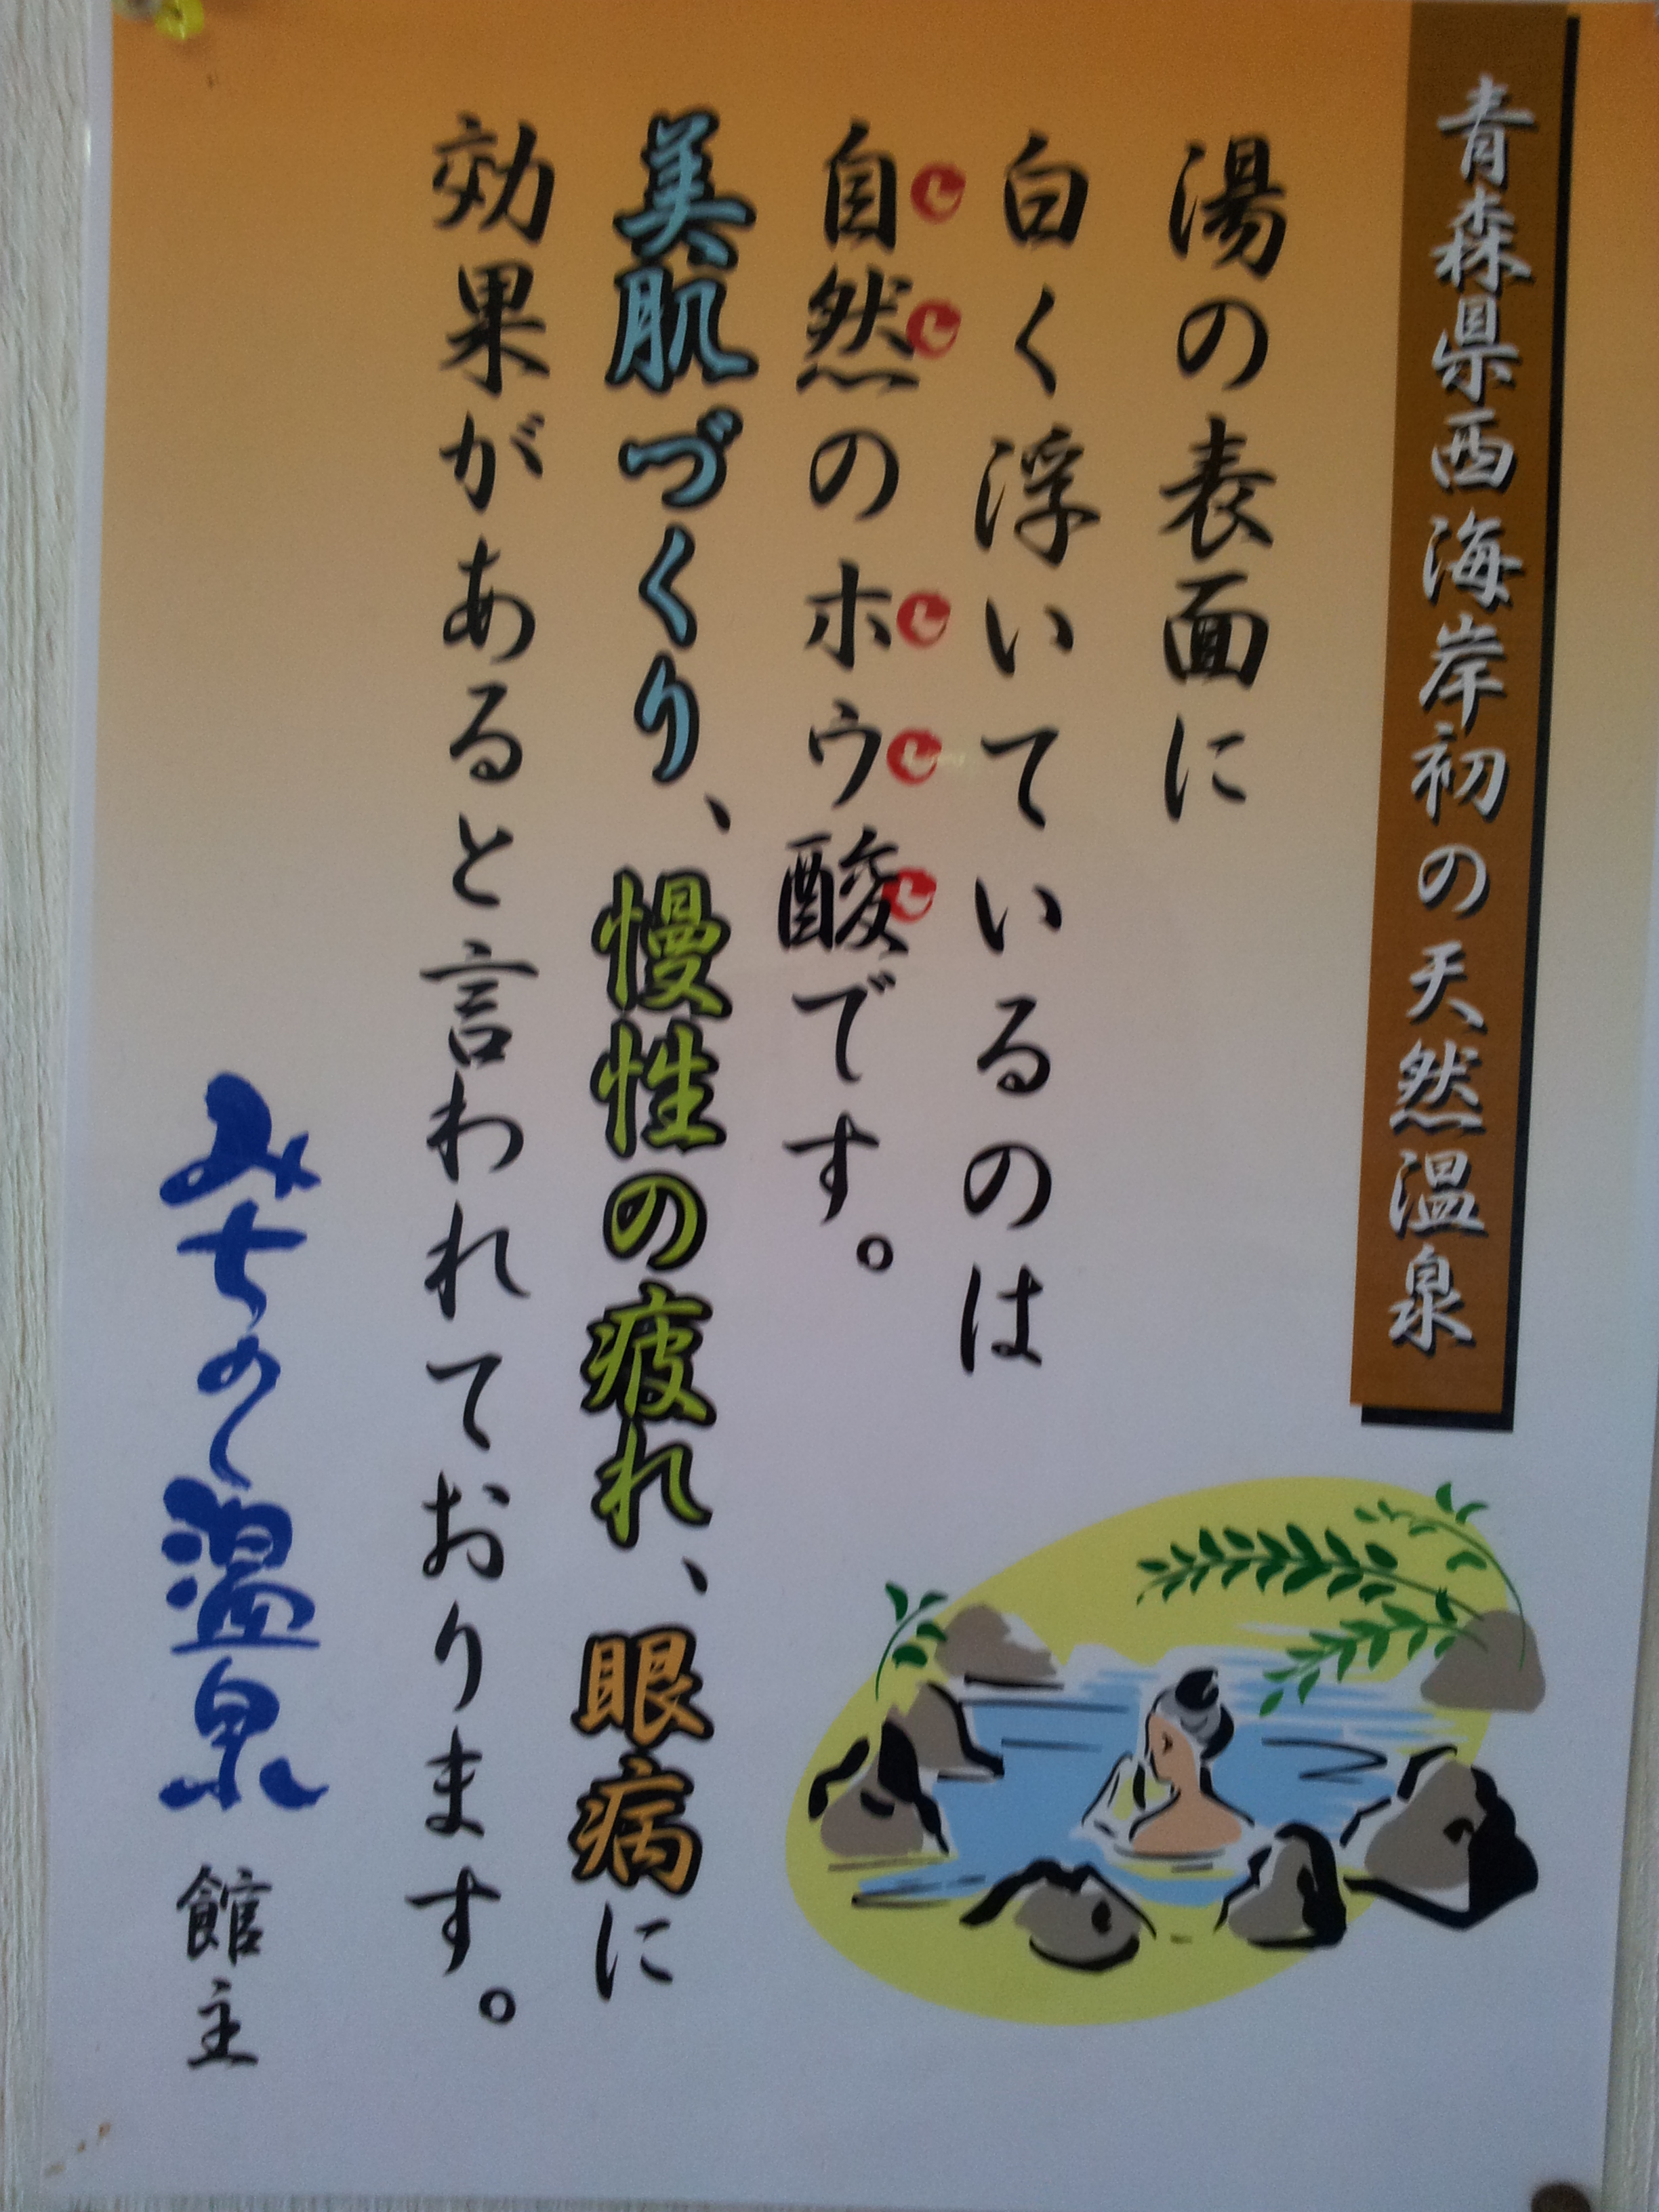 青森県西海岸初の天然温泉
湯の表面に
白く浮いているのは
自然のホウ酸です。
美肌づくり、慢性の疲れ、眼病に
効果があると言われております。
みちのく温泉 館主